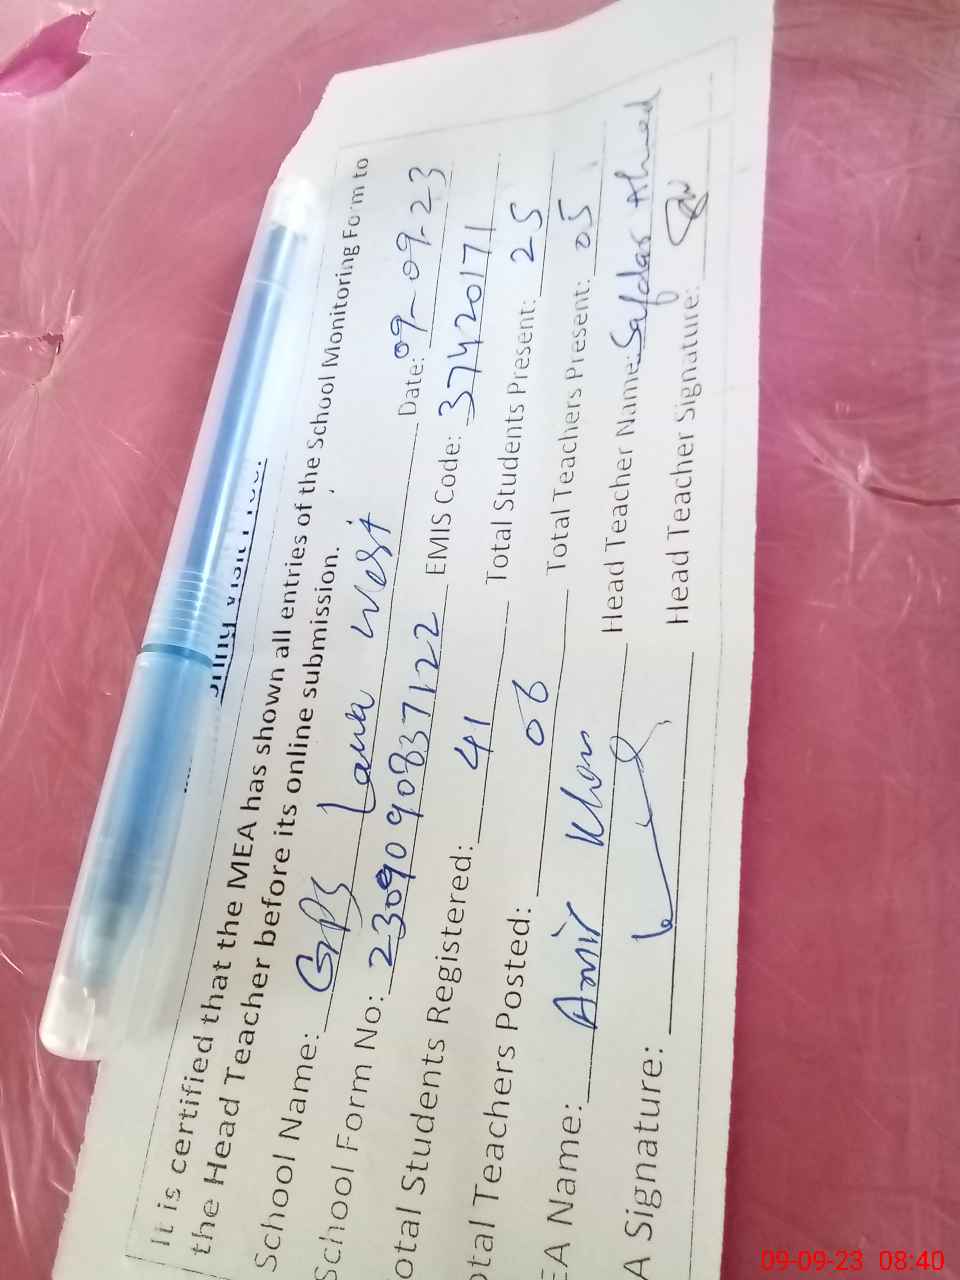 It is certified that the MEA has shown all entries of the School Monitoring Form to
the Head Teacher before its online submission.
School Name: GPS Lawa West Date: 09-09-23
School Form No: 2309090837122 EMIS Code: 37420171
otal Students Registered: 41 Total Students Present: 25
otal Teachers Posted: 06 Total Teachers Present: 05
EA Name: Amir Khan Head Teacher Name: Safdar Ahmed
A Signature: Head Teacher Signature:
09-09-23 08:40